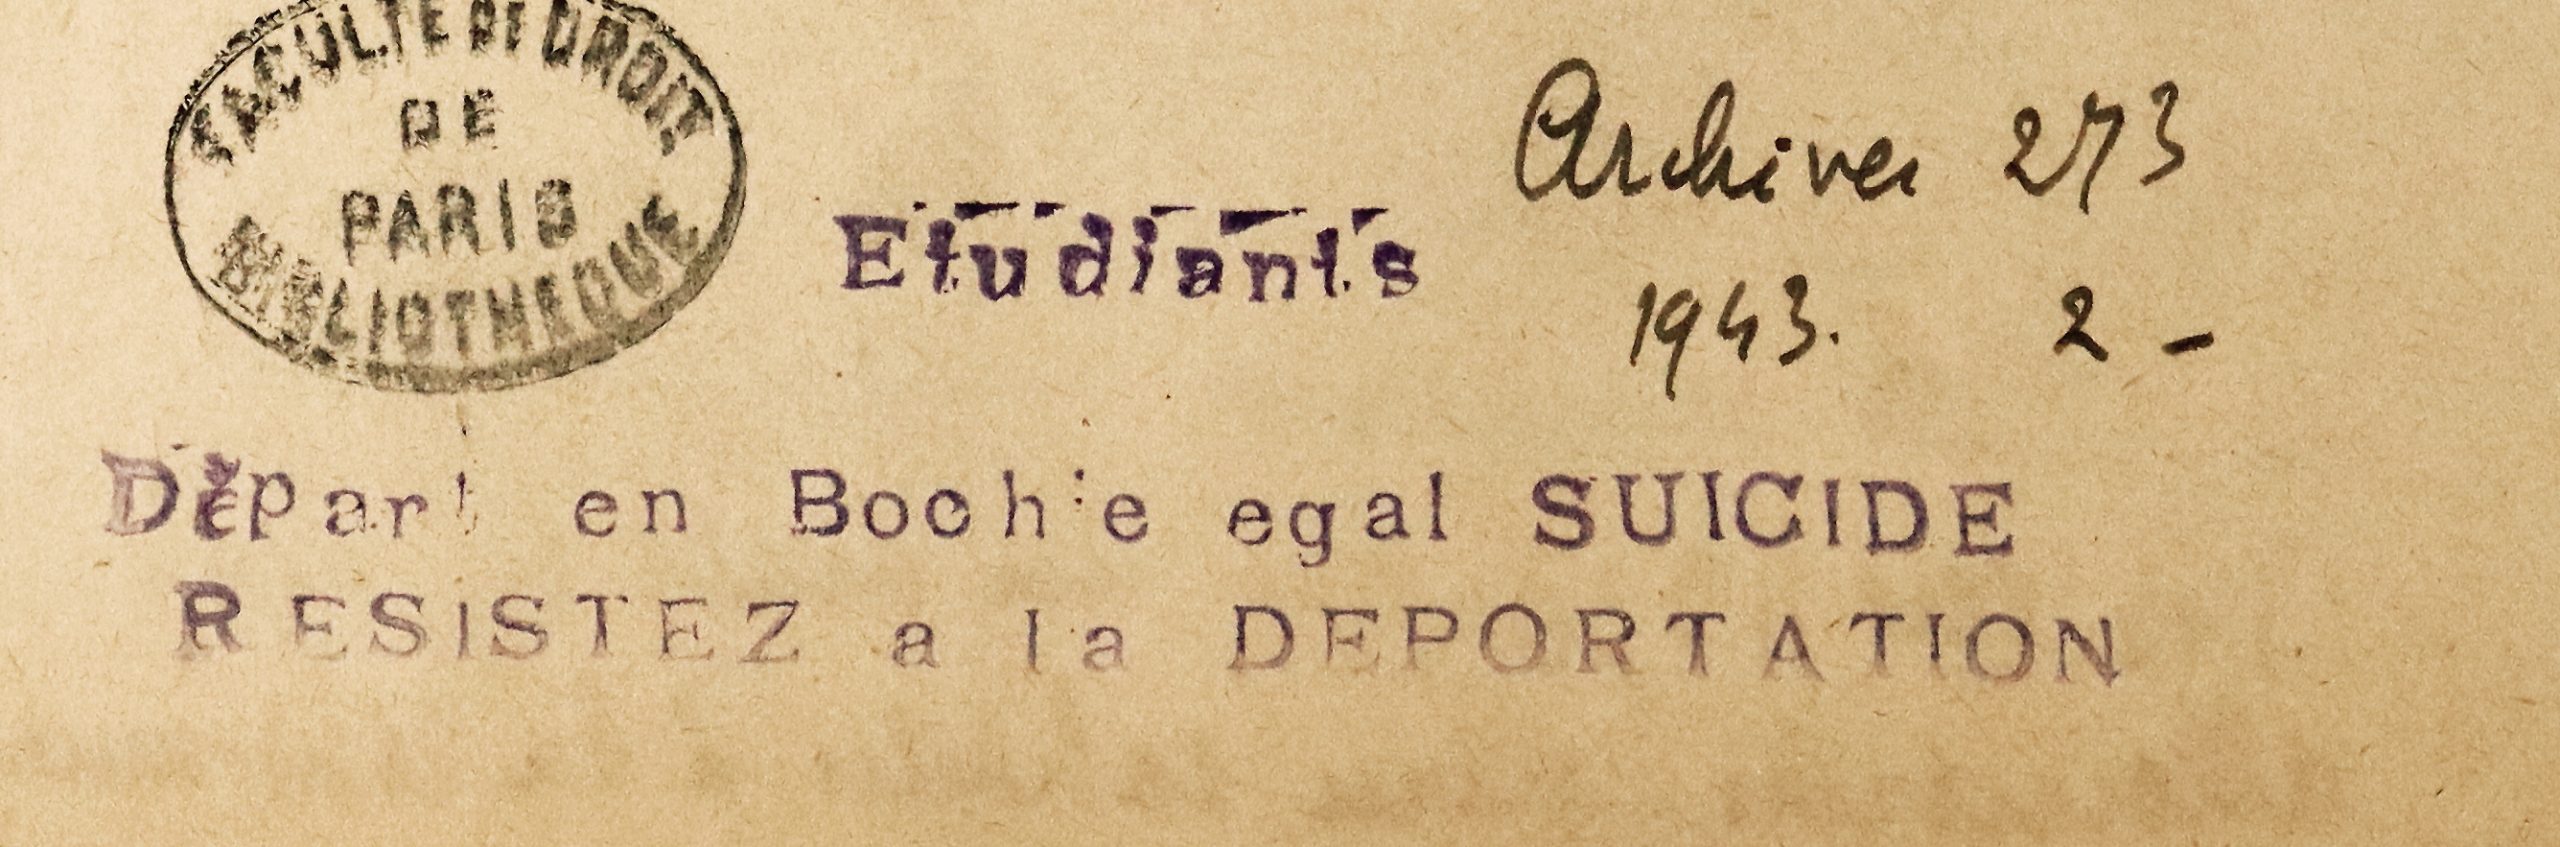 FACULTE DE DROIT
DE
PARIS
BIBLIOTHEQUE
Archives 273
Etudiants
1943. 2 -
Départ en Bochie egal SUICIDE
RESISTEZ a la DEPORTATION